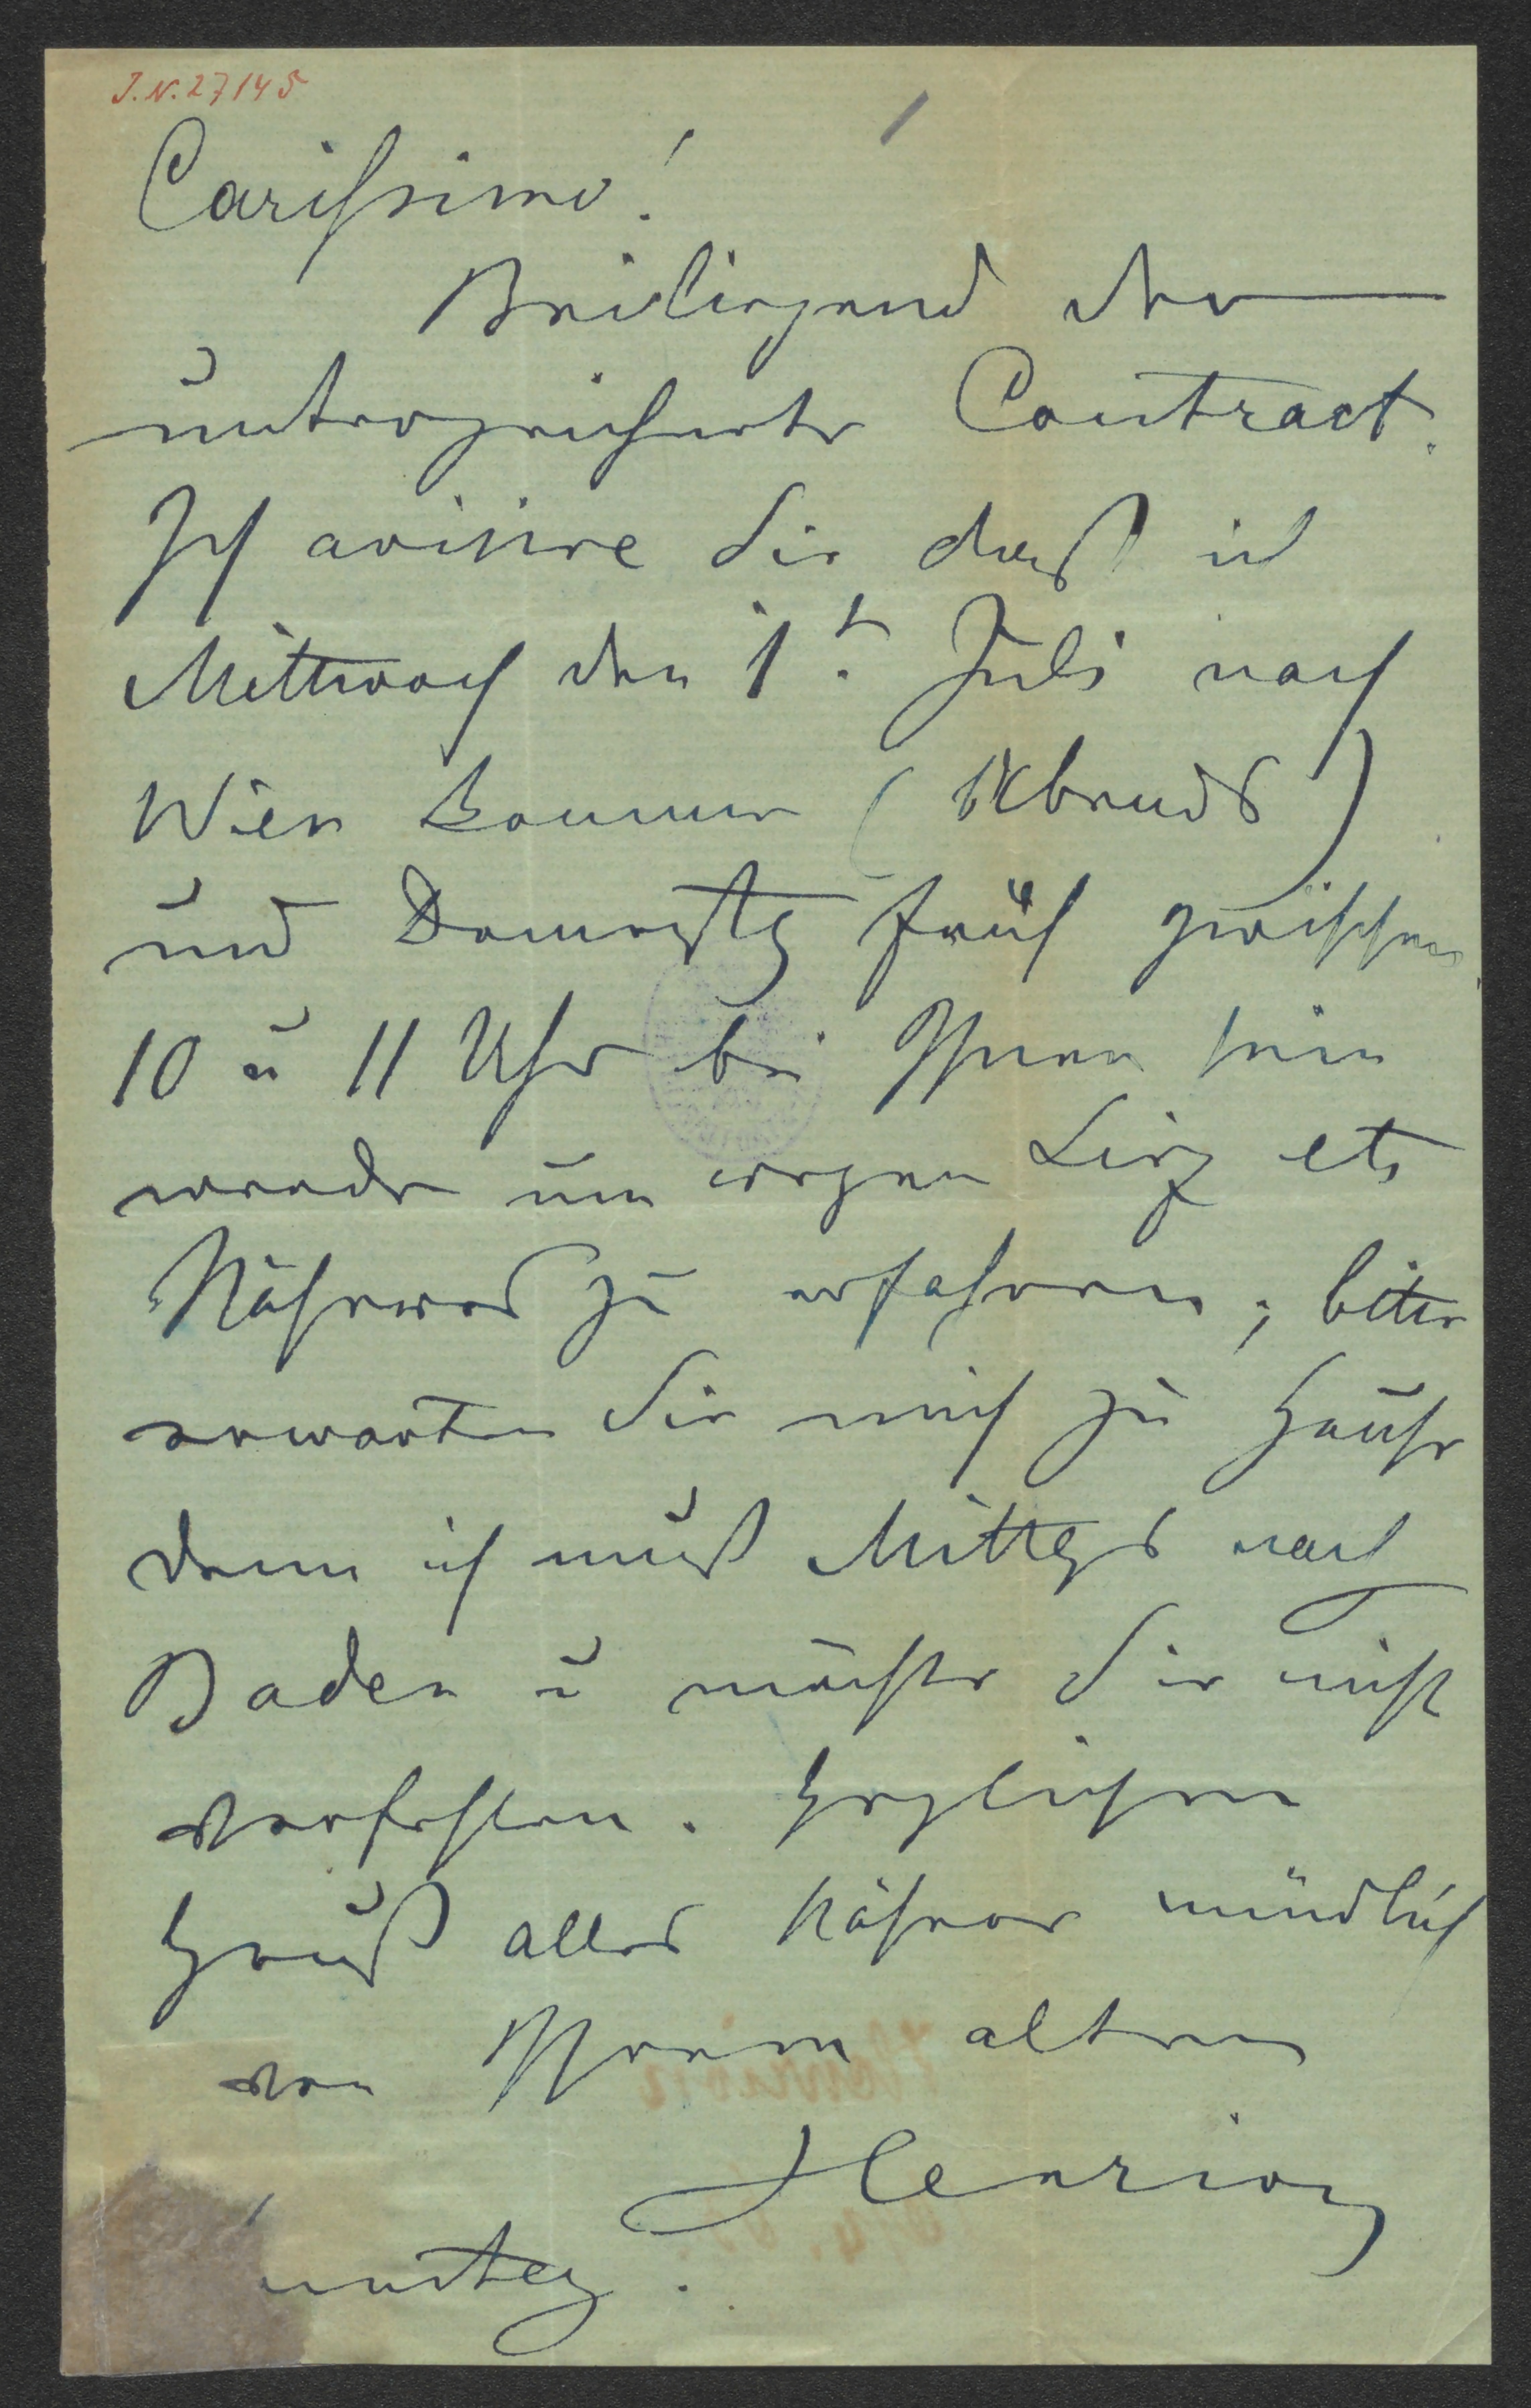 J.N. 27145
Carissimo!
Beiliegend der
unterzeichnete Contract.
Ich avisire Sie daß ich
Mittwoch den 1t. Juli nach
Wien komme (Abends)
und Donnerstg früh zwischen
10 u 11 Uhr bei Ihnen sein
werde um wegen etc
Näheres zu erfahren; bitte
erwarten Sie mich zu Hause
denn ich muß Mittgs nach
Baden u möchte Sie nicht
verfehlen. Herzlichen
Gruß alles Nähere mündlich
von Ihrem alten